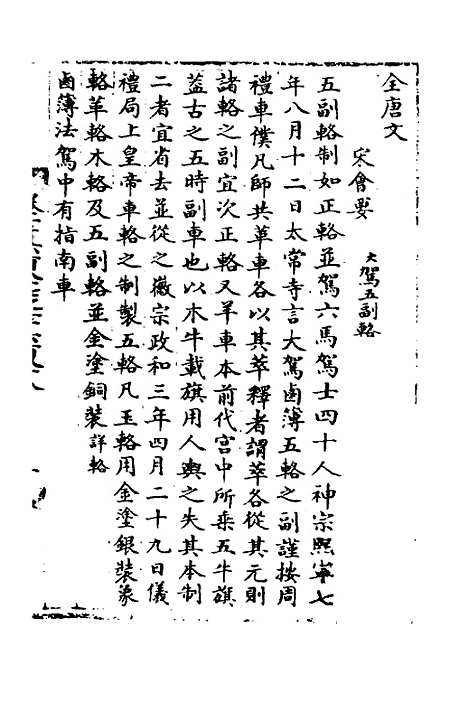 全唐文
宋會要 大駕五副輅
五副輅制如正輅並駕六馬駕士四十人神宗熙寧七
年八月十二日太常寺言大駕鹵簿五輅之副謹按周
禮車僕凡師共革車各以其萃釋者謂萃各從其元則
諸輅之副宜次正輅又羊車本前代宮中所乘五牛旗
蓋古之五時副車也以木牛載旗用人輿之失其本制
二者宜省去並從之徽宗政和三年四月二十九日儀
禮局上皇帝車輅之制製五輅凡玉輅用金塗銀裝象
輅革輅木輅及五副輅並金塗銅裝詳輅
鹵簿法駕中有指南車